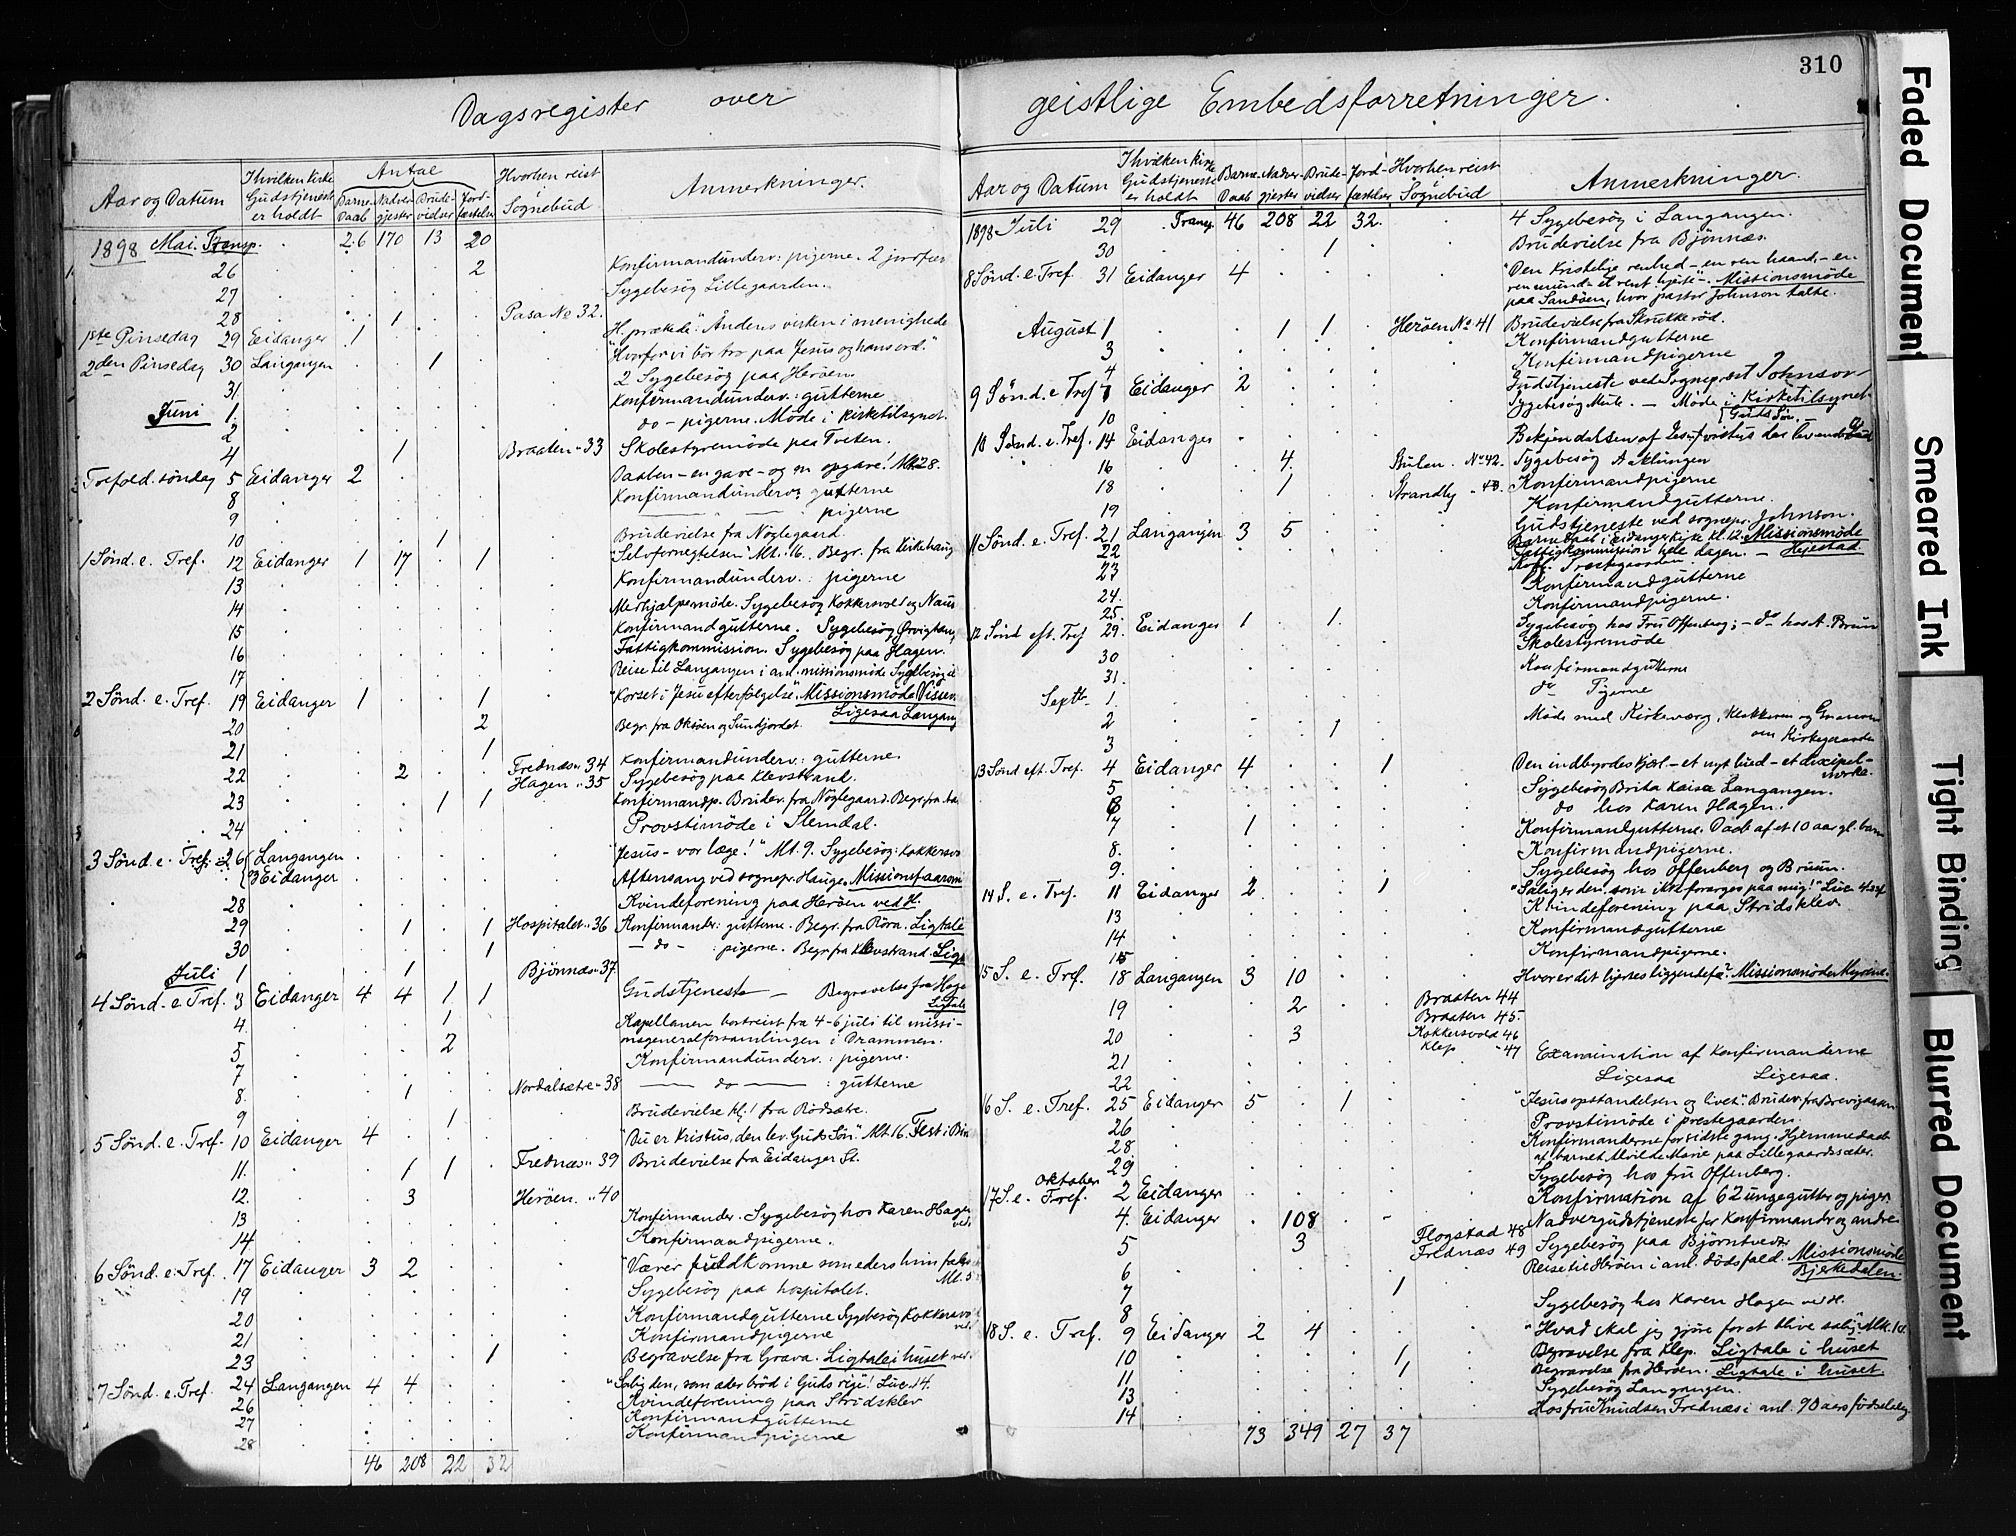 310
Dagsregister over geistlige Embedsforretninger.
Aar og Datum
I hvilken Kirke Gudstjeneste er holdt
Antal
Barne Daab
Nadver gjester
Brude vidser
Jord fæstelser
Hvorhen reist i Sognebud
Anmerkninger.
1898 Mai. Transp. 26 170 13 20
26 2 Konfirmandunderv: pigerne. 2 jordfæs
27 Sygebesøg Lillegaarden.
28 1 Pasa No 32.
1ste Pinsedag 29 Eidanger 1 H. prækede: Andens virken i menighede
2den Pinsedag 30 Langangen 1 "Hvorfor vi bør tro paa Jesus og hans ord."
31 2 Sygebesøg paa Herøen.
Juni 1. Konfirmandunderv: gutterne
2 do - pigerne. Møde i Kirketilsynet.
4 1 Braaten " 33 Skolestyremøde paa Tveten.
Trefold. søndag 5 Eidanger 2 Daaben - en gave - og en opgave! Mt. 28.
8 Konfirmandunderv: gutterne
9 " pigerne
10 1 Brudevielse fra Nøglegaard.
1 Sønd. e. Tref. 12 Eidanger 1 17 1 "Selvfornegtelsen" Mt. 16. Begr. fra Kirkehaug
13 Konfirmandunderv.: pigerne
14 Merhjælpemøde. Sygebesøg Kokkersvold og Næus
15 Konfirmandgutterne. Sygebesøg Ørvighaug
16 Fattigkommission. Sygebesøg paa Hagen.
17 Reise til Langangen i anl. missionsmøde Sygebesøg
2 Sønd. e. Tref. 19 Eidanger 1 1 "Korset i Jesu efterfølgelse". Missionsmøde Vissen
Ligesaa Langang
20 2 Begr. fra Oksøen og Sundjordet.
21 1 Konfirmandunderv: gutterne
22 2 Frednæs " 34
Hagen " 35 Sygebesøg paa Klevstrand.
23 1 1 Konfirmandp. Brudev. fra Nøglegaard. Begr. fra
24 Provstimøde i Slemdal.
3 Sønd. e. Tref. 26 Langangen "Jesus - vor læge!" Mt. 9. Sygebesøg: Kokkersvo
Eidanger Aftensang ved sognepr. Hauge. Missionsfaarom
28 Kvindeforening paa Herøen ved H.
29 1 1 Hospitalet " 36 Konfirmander: gutterne. Begr. fra Röra. Ligtale
30 1 - do - : pigerne. Begr. fra Klevstrand. Ligt
Juli 1 1 Bjønnæs " 37
4 Sønd. e. Tref. 3 Eidanger 4 4 1 1 Gudstjeneste - Begravelse fra Hage
Ligtale
4. 1 Kapellanen bortreist fra 4-6 juli til missi-
5 2 onsgeneralforsamlingen i Drammen.
7 Konfirmandunderv.: pigerne.
8. 1 Nordalsætre " 38 - do - : gutterne
9 1 Brudevielse kl. 1 fra Rødsætre.
5 Sønd. e. Tref. 10 Eidanger 4 "Du er Kristus, den lev. Guds Søn." Mt. 16. Fest i
11. 1 1 Frednæs " 39 Brudevielse fra Eidanger St.
12. 3 Herøen. " 40
13 Konfirmander. Sygebesøg hos Karen Hagen
ved
14 Konfirmandpigerne.
6 Sønd. e. Tref. 17 Eidanger 3 2 "Værer fuldkomne som eders him
Mt. 5
19 Sygebesøg paa hospitalet.
20 Konfirmandgutterne Sygebesøg Kokkersvo
21 Konfirmandpigerne
23 1 Begravelse fra Grava. Ligtale i huset ved.
7 Sønd. e. Tref. 24 Langangen 4 4 "Salig den, som æder brød i Guds rige! Luc. 14.
26 Kvindeforening paa Stridsklev
27 Konfirmandgutterne
28 Konfirmandpigerne
46 208 22 32
Aar og Datum
I hvilken Kirke Gudstjeneste er holdt
Barne Daab
Nadver gjester
Brude vidser
Jord fæstelser
Hvorhen reist i Sognebud
Anmerkninger.
1898 Juli 29 Transp. 46 208 22 32. 4 Sygebesøg i Langangen.
30 1 Brudevielse fra Bjønnæs.
8 Sønd. e. Tref. 31 Eidanger 4 "Den kristelige renhed - en ren haand, - en
ren mund - et rent hjerte" - Missionsmøde
paa Sandøen, hvor pastor Johnson talte.
August 1 1 1 Herøen No 41 Brudevielse fra Skrukkerød.
3 Konfirmandgutterne
4 Konfirmandpigerne
9 Sønd. e Tref 7 Eidanger 2 Gudstjeneste ved Sogneprest Johnson
10 Sygebesøg Mule. - Møde i Kirketilsynet
10 Sønd. e. Tref. 14 Eidanger Bekjendelsen af Jesus Kristus den levende Guds Søn
16 4. Stulen. No 42. Sygebesøg Aaklungen
18 1 Strandby " 43. Konfirmandpigerne
19 Konfirmandgutterne.
11 Sønd. e. Tref. 21 Langangen 3 5 Gudstjeneste ved sognepr. Johnson.
22 Barnedaab i Eidanger kirke kl. 12. Missionsmøde
23 Fattigkommission hele dagen. - Heiestad
Konf. Præstegaarden.
24. Konfirmandgutterne
25. Konfirmandpigerne.
12 Sønd eft. Tref 29. Eidanger 1 1. Sygebesøg hos Fru Offenberg; - do hos A. Bruun
30 Skolestyremøde
31. Konfirmandgutterne
Septb. 1. do Pigerne
2 Møde med Kirkeværg, Klokkeren og Graveren
3 1 om Kirkegaarden
13 Sønd eft. Tref. 4 Eidanger 4 1 Den indbyrdes kjærl. - et nyt bud - et discipel-
mærke.
5 Sygebesøg Brita Kaisa Langangen.
6 do hos Karen Hagen.
7 1 Konfirmandgutterne. Daab af et 10 aar gl. barn
8. Konfirmandpigerne.
9. Sygebesøg hos Offenberg og Bruun.
14 S. e. Tref. 11 Eidanger 2 1 "Salig er den, som ikke forarges paa mig!" Luc.
13 Kvindeforening paa Stridsklev
14 Konfirmandgutterne
15 Konfirmandpigerne.
15 S. e. Tref. 18 Langangen 3 10 Hvor er dit hjertes liggendefæ? Missionsmøde
19 2 Braaten 44
Braaten 45.
20 3 Kokkersvold 46
Klep " 47
21 Examination af konfirmanderne
22 Ligesaa Ligesaa.
16 S. e. Tref. 25 Eidanger 5 1 "Jesus opstandelsen og livet" Brudev. fra
26 Provstimøde i prestegaarden
28 Konfirmanderne for sidste gang. Hjemmedaab
af barnet Alvilde Marie paa Lillegaardssæter.
29 Sygebesøg hos fru Offenberg.
Oktober
17 S. e. Tref. 2 Eidanger Konfirmation af 62 unge gutter og piger.
4. Eidanger 108 Nadvergudstjeneste for Konfirmander og andre
5 3 Flogstad 48
Frednæs 49 Sygebesøg paa Bjørntvedt
6 Reise til Herøen i anl. dødsfald. Missionsmøde
Bjerkedalen.
7 1
8 Sygebesøg hos Karen Hagen ved H.
18 S. e. Tref. 9 Eidanger 2 4 "Hvad skal jeg gjøre for at blive salig" Mk. 10.
10 1 Begravelse fra Klep. Ligtale i huset
11 1 Begravelse fra Herøen. Ligtale i huset.
13 Sygebesøg Langangen.
14 Hos fru Knudsen Frednæs i anl. 90 aars fødselsdag
73 349 27 37
Faded Document
Smeared Ink
Tight Binding
Blurred Document